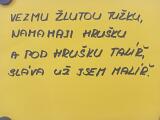 VEZMU ŽLUTOU TUŽKU,
NAMAMAJI HRUŠKU
A POD HRUŠKU TALÍŘ,
SLÁVA UŽ JSEM MALÍŘ.